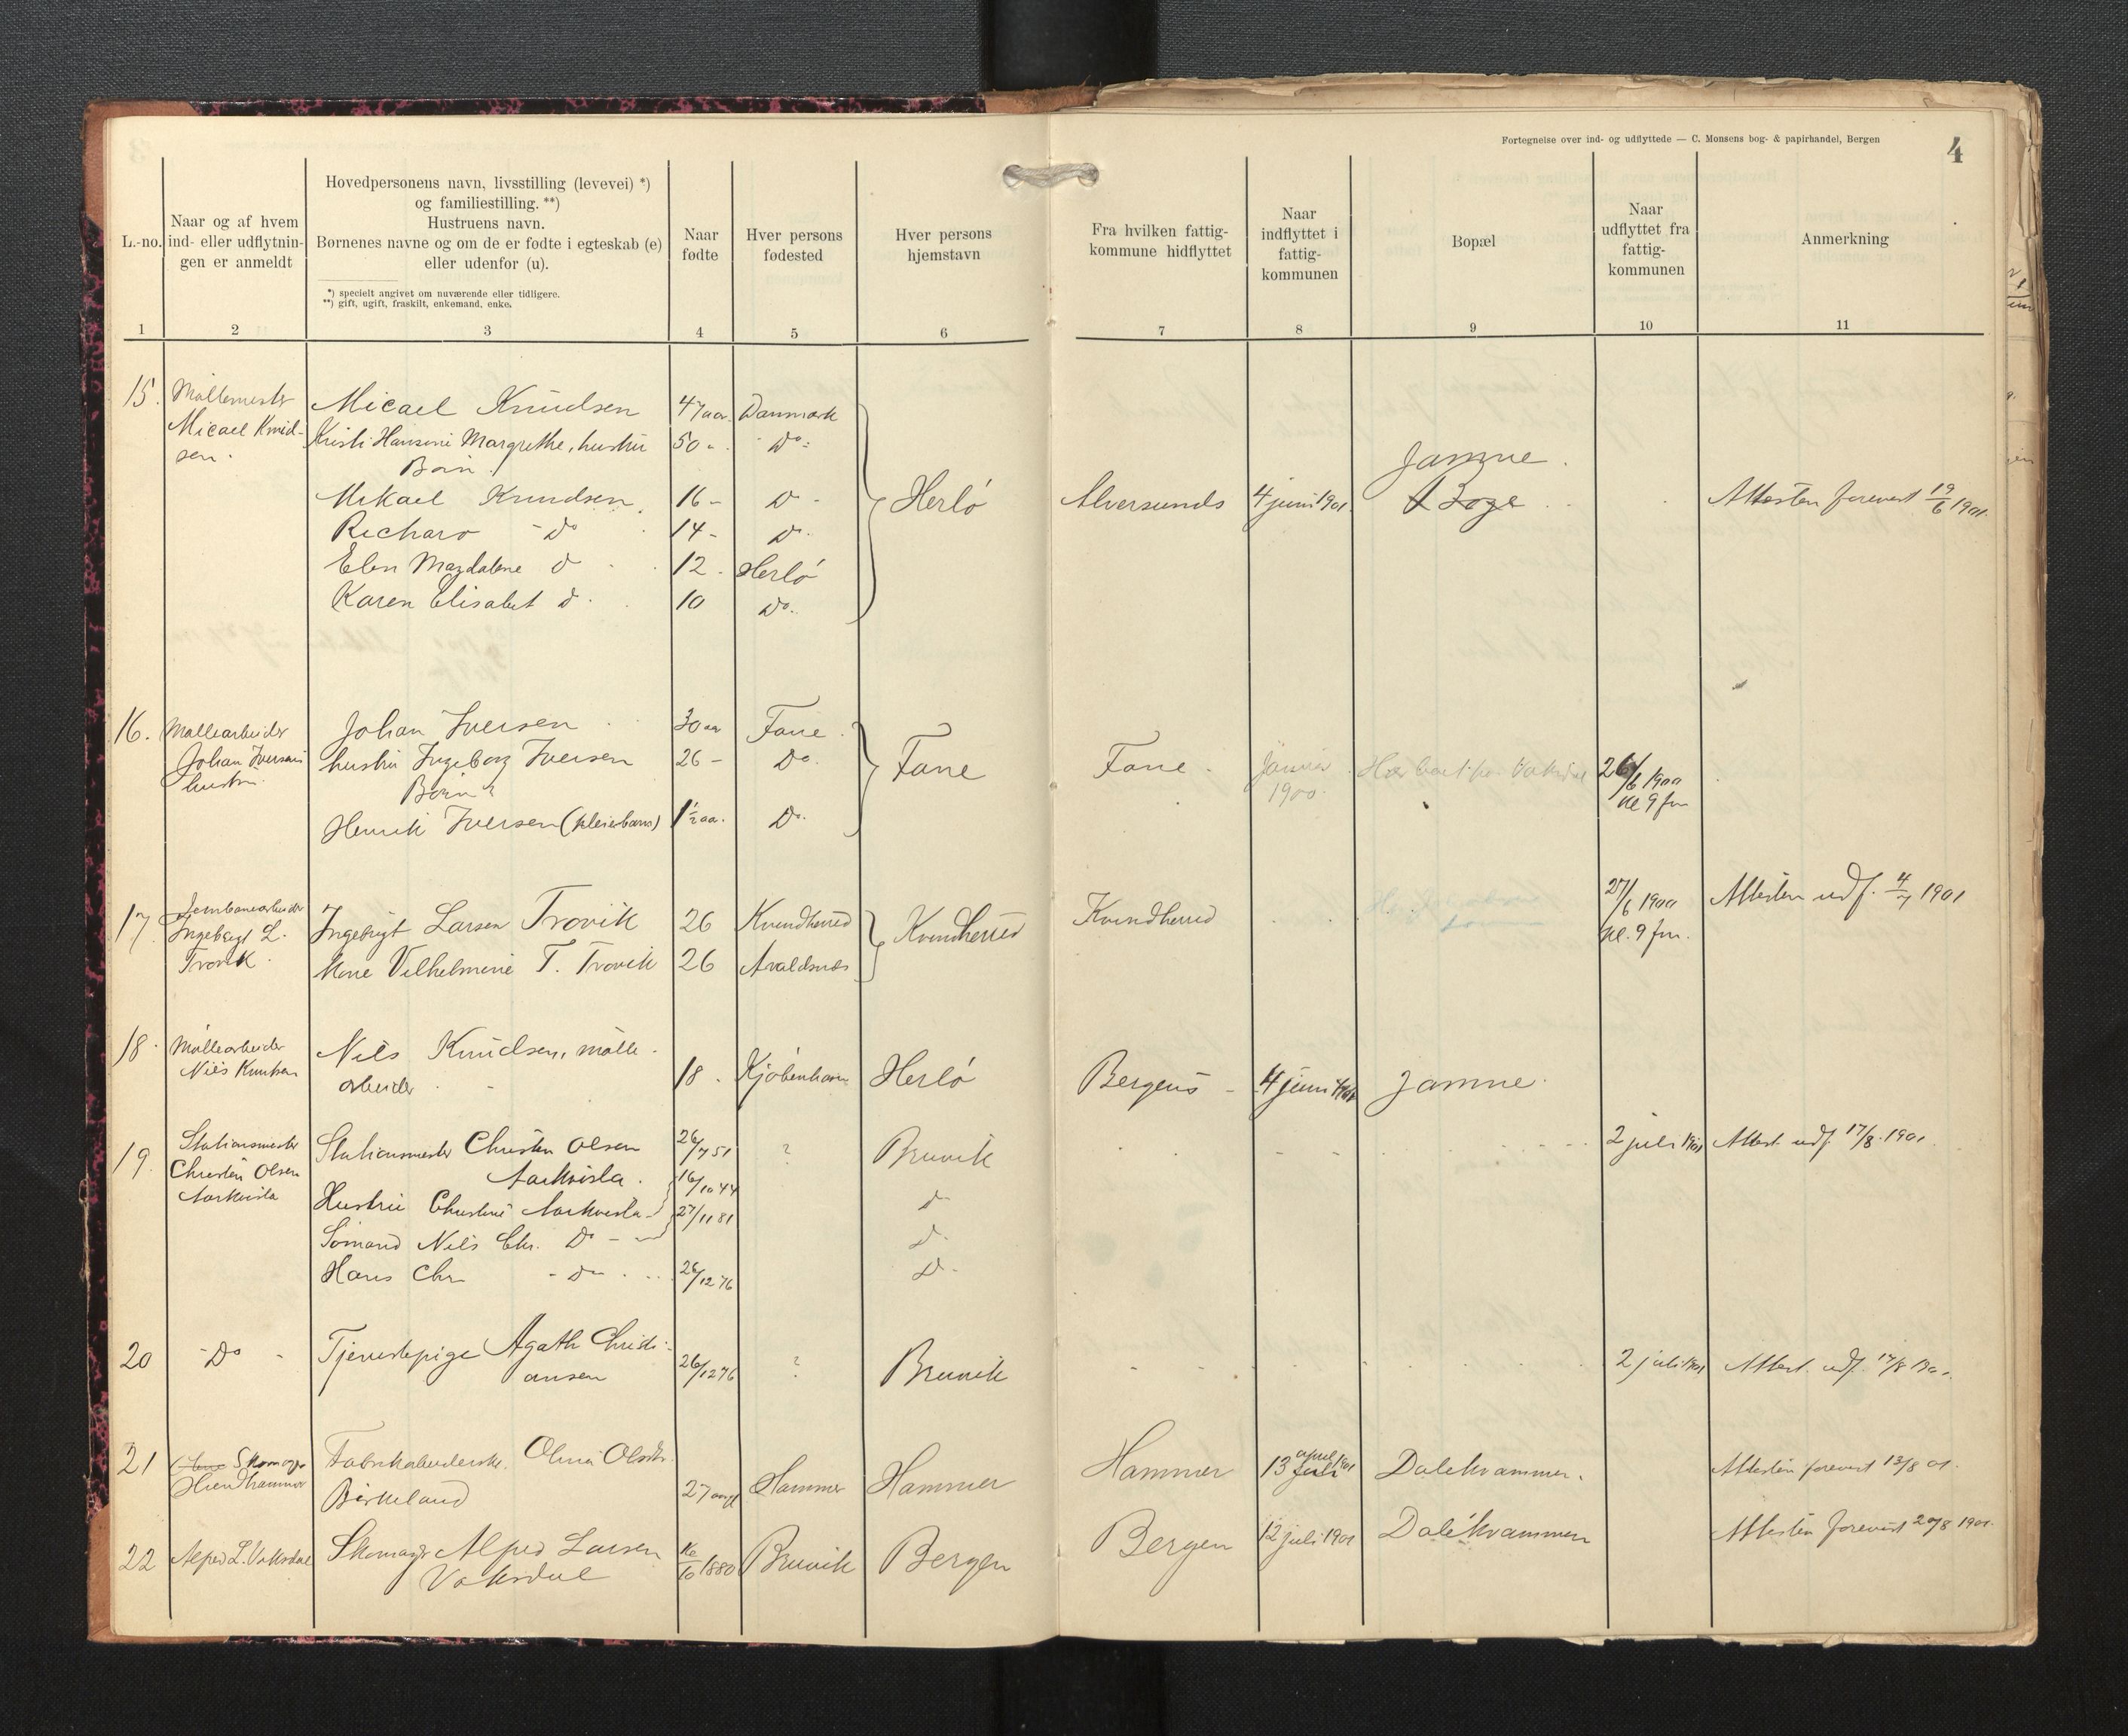 Fortegnelse over ind- og udflyttede — C. Monsens bog- & papirhandel, Bergen
4
L.-no.
Naar og af hvem
ind- eller udflytnin-
gen er anmeldt
Hovedpersonens navn, livsstilling (levevei) *)
og familiestilling. **)
Hustruens navn.
Børnenes navne og om de er fødte i egteskab (e)
eller udenfor (u).
*) specielt angivet om nuværende eller tidligere.
**) gift, ugift, fraskilt, enkemand, enke.
Naar
fødte
Hver persons
fødested
Hver persons
hjemstavn
Fra hvilken fattig-
kommune hidflyttet
Naar
indflyttet i
fattig-
kommunen
Bopæl
Naar
udflyttet fra
fattig-
kommunen
Anmerkning
1 2 3 4 5 6 7 8 9 10 11
15. Møllemester
Micael Knud-
sen.
Micael Knudsen 47 aar Danmark
Hansine Margrethe, hustru 50 - Do
Børn.
Mikael Knudsen 16 - Do
Richard Do 14 - Do
Elen Magdalene Do 12 - Herlø
Karen Elisabet Do 10 Do
Herlø Alversunds 4 juni 1901 Jamne. Attesten forevist 19/6 1901.
16. Møllearbeider
Johan Iversen
hustru
Johan Iversen 30 aar Fane
hustru Ingeborg Iversen 26 - Do
Børn
Henrik Iversen (pleiebarn) 1½ aar. Do
Fane Fane Januar
1900. 26/6 1900
kl 9 fm
17 Jernbanearbeider
Ingebrigt L.
Trovik
Ingebrigt Larsen Trovik 26 Kvindherred
Vilhelmine T. Trovik 26 Avaldsnæs
Kvindherred Kvindherred 27/6 1900
kl. 9 fm. Attesten udf. 4/7 1901
18. Møllearbeider
Nils Knudsen
Nils Knudsen, mølle-
arbeider
18 Kjøbenhavn Herlø Bergens 4 juni 1901 Jamne.
19. Stationsmester
Christen Olsen
Aarkvisla
Stationsmester Christen Olsen 26/7 51 ? Bruvik
Aarkvisla. 16/10 44
Hustru Christine Aarkvisla 27/11 81 Do
Sømand Nils Chr. Do Do
Hans Chr Do 26/12 76 Do
2 juli 1901 Attest udf. 17/8 1901
20 Do Tjenestepige Agath Christi-
ansen 26/12 76 ? Bruvik 2 juli 1901 Attest. udf. 17/8 1901.
21 Skomager
Hammer
Fabrikarbeiderske. Olina Olsdtr.
Birkeland 27 aar Hammer Hammer Hammer 13 april 1901 Dalekvammen. Attesten forevist 13/8 01.
22 Alfred L. Vaksdal Skomager Alfred Larsen
Vaksdal 16/10 1880 Bruvik Bergen Bergen 12 juli 1901 Dalekvammen Attesten forevist 20/8 1901.